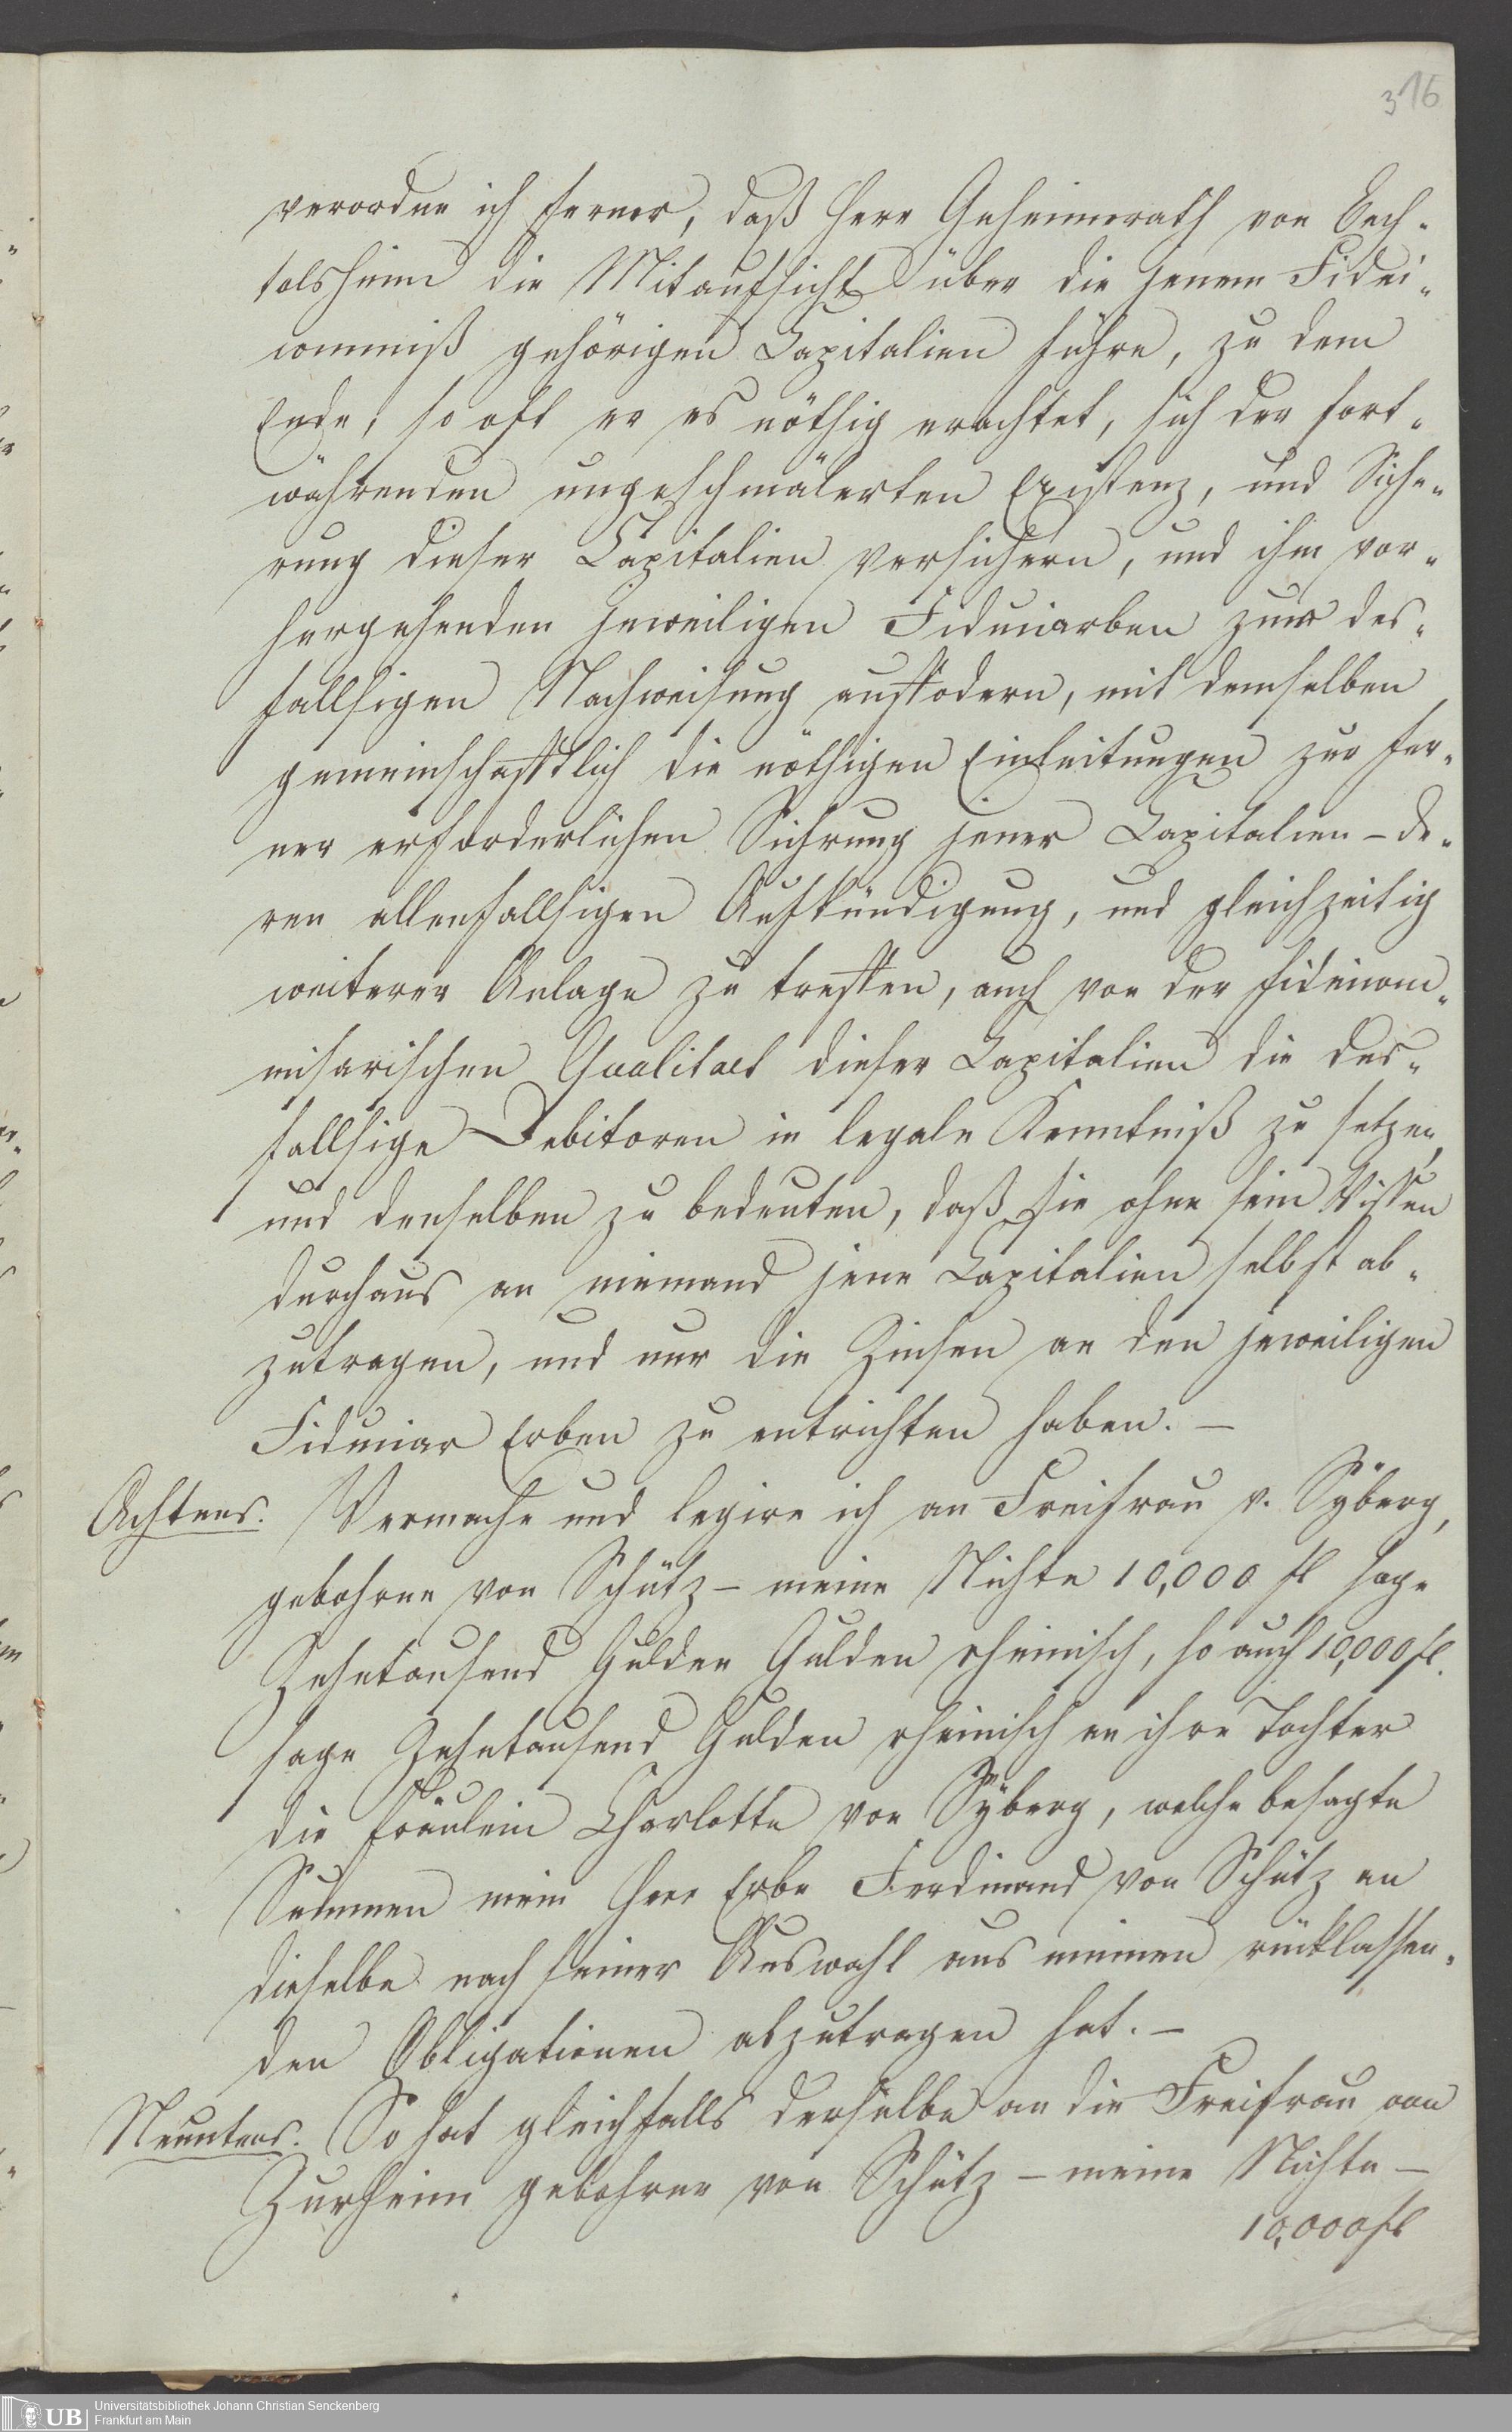 316
verordne ich ferner, daß Herr Geheimerath von Bech-
tolsheim die Mitaufsicht über die jenem Fidei-
commiß gehörigen Capitalien führe, zu dem
Ende, so oft er es nöthig erachtet, sich der fort-
währenden ungeschmälerten Existenz, und Siche-
rung dieser Capitalien versichern, und ihm vor-
hergehenden jeweiligen Fiduciarben zur des-
fallsigen Nachweisung auffodern, mit demselben
gemeinschafftlich die nöthigen Einleitungen zur fer-
ner erforderlichen Sichrung jener Capitalien – de-
ren allenfallsigen Aufkündigung, und gleichzeitig
weiterer Anlage zu treffen, auch von der fideicom-
misarischen Qualitaet dieser Capitalien die des-
fallsige Debitoren in legale Kenntniß zu setzen,
und denselben zu bedeuten, daß sie ohne sein Wissen
durchaus an niemand jene Capitalien selbst ab-
zutragen, und nur die Zinsen an den jeweiligen
Fiduciar Erben zu entrichten haben. –
Achtens. Vermache und legire ich an Freifrau v. Sÿberg,
gebohrne von Schütz – meine Nichte 10,000 fl sage
Zehntausend Gulden Gulden rheinisch, so auch 10,000 fl.
sage Zehntausend Gulden rheinisch an ihre Tochter
die Fräulein Charlotte von Sÿberg, welche besagte
Summen mein Herr Erbe Ferdinand von Schütz an
dieselbe nach seiner Auswahl aus meinen rücklassen-
den Obligationen abzutragen hat. –
Neuntens. So hat gleichfalls derselbe an die Freifrau von
Zurheim gebohrne von Schütz – meine Nichte –
10,000 fl
UB
Universitätsbibliothek Johann Christian Senckenberg
Frankfurt am Main